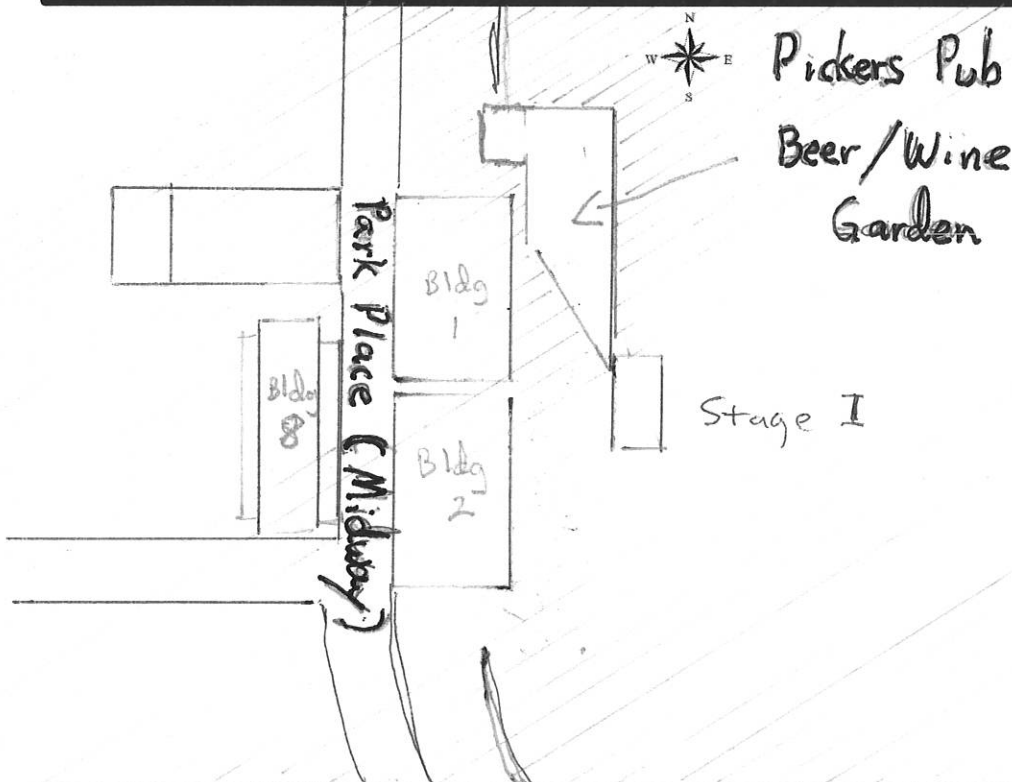 N
W E
S
Pickers Pub
Beer/Wine
Garden
Park Place (Midway)
Bldg
1
Bldg
8
Bldg
2
Stage I